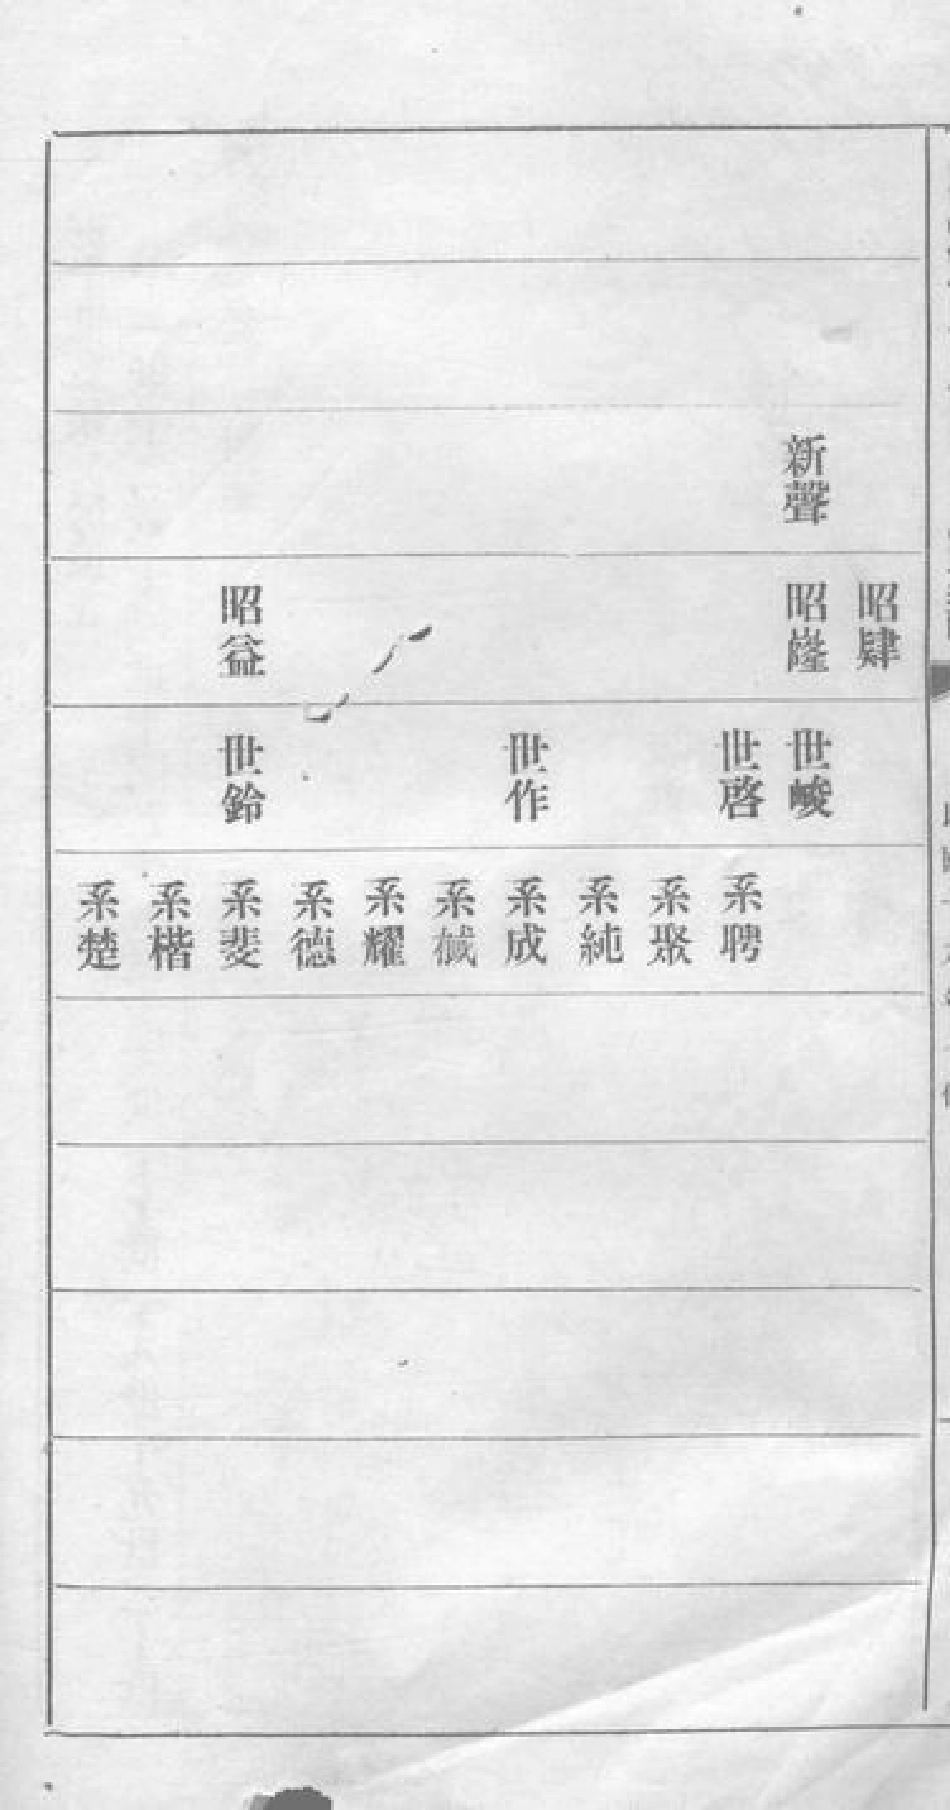 新聲
昭肆
昭嶐
昭益
世峻
世啓
世作
世鈴
系聘
系聚
系純
系成
系棫
系耀
系德
系斐
系楷
系楚